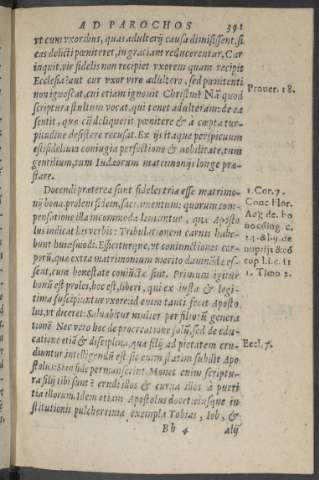 AD PAROCHOS 391
vt cum vxoribus, quas adulterij causa dimisissent, si
eas delicti pœniteret, in gratiam redirent. Cur
inquit, vir fidelis non recipiet vxorem quam recipit
Ecclesia? aut cur vxor viro adultero, sed pœnitenti
non ignoscat, cui etiam ignouit Christus? Nã quod
scriptura stultum vocat, qui tenet adulterã: de ea
sentit, quæ cũ deliquerit pœnitere & a cœpta tur-
pitudine desistere recusat. Ex ijs itaque perspicuum
est, fidelium coniugia perfectione & nobilitate, tum
gentilium, tum Iudæorum matrimonijs longe præ-
stare.
Docendi præterea sunt fideles tria esse matrimo-
nij bona, prolem, fidem, sacramentum: quorum com-
pensatione illa incommoda leniuntur, quæ Aposto
lus indicat his verbis: Tribulationem carnis habe-
bunt huiusmodi. Efficiturque, vt coniunctiones cor-
porũ, quæ extra matrimonium merito damnãdæ es-
sent, cum honestate coniũctæ sint. Primum igitur
bonũ est proles, hoc est, liberi, qui ex iusta & legi-
tima suscipiuntur vxore: id enim tanti fecit Aposto
lus, vt diceret: Saluabitur mulier per filiorũ genera
tionẽ. Nec vero hoc de procreatione solũ, sed de edu-
catione etiã & disciplina, qua filij ad pietatem eru-
diuntur intelligendũ est: sic enim statim subdit Apo
stolus: Si in fide permanserint. Monet enim scriptu-
ra: filij tibi sunt? erudi illos & curua illos à pueri
tia illorum. Idem etiam Apostolus docet, eiusque in
stitutionis pulcherrima exempla Tobias, Iob, &
Bb 4 alij
Prouer. 18.
1. Cor. 7.
1. Timo 2.
Eccl. 7.